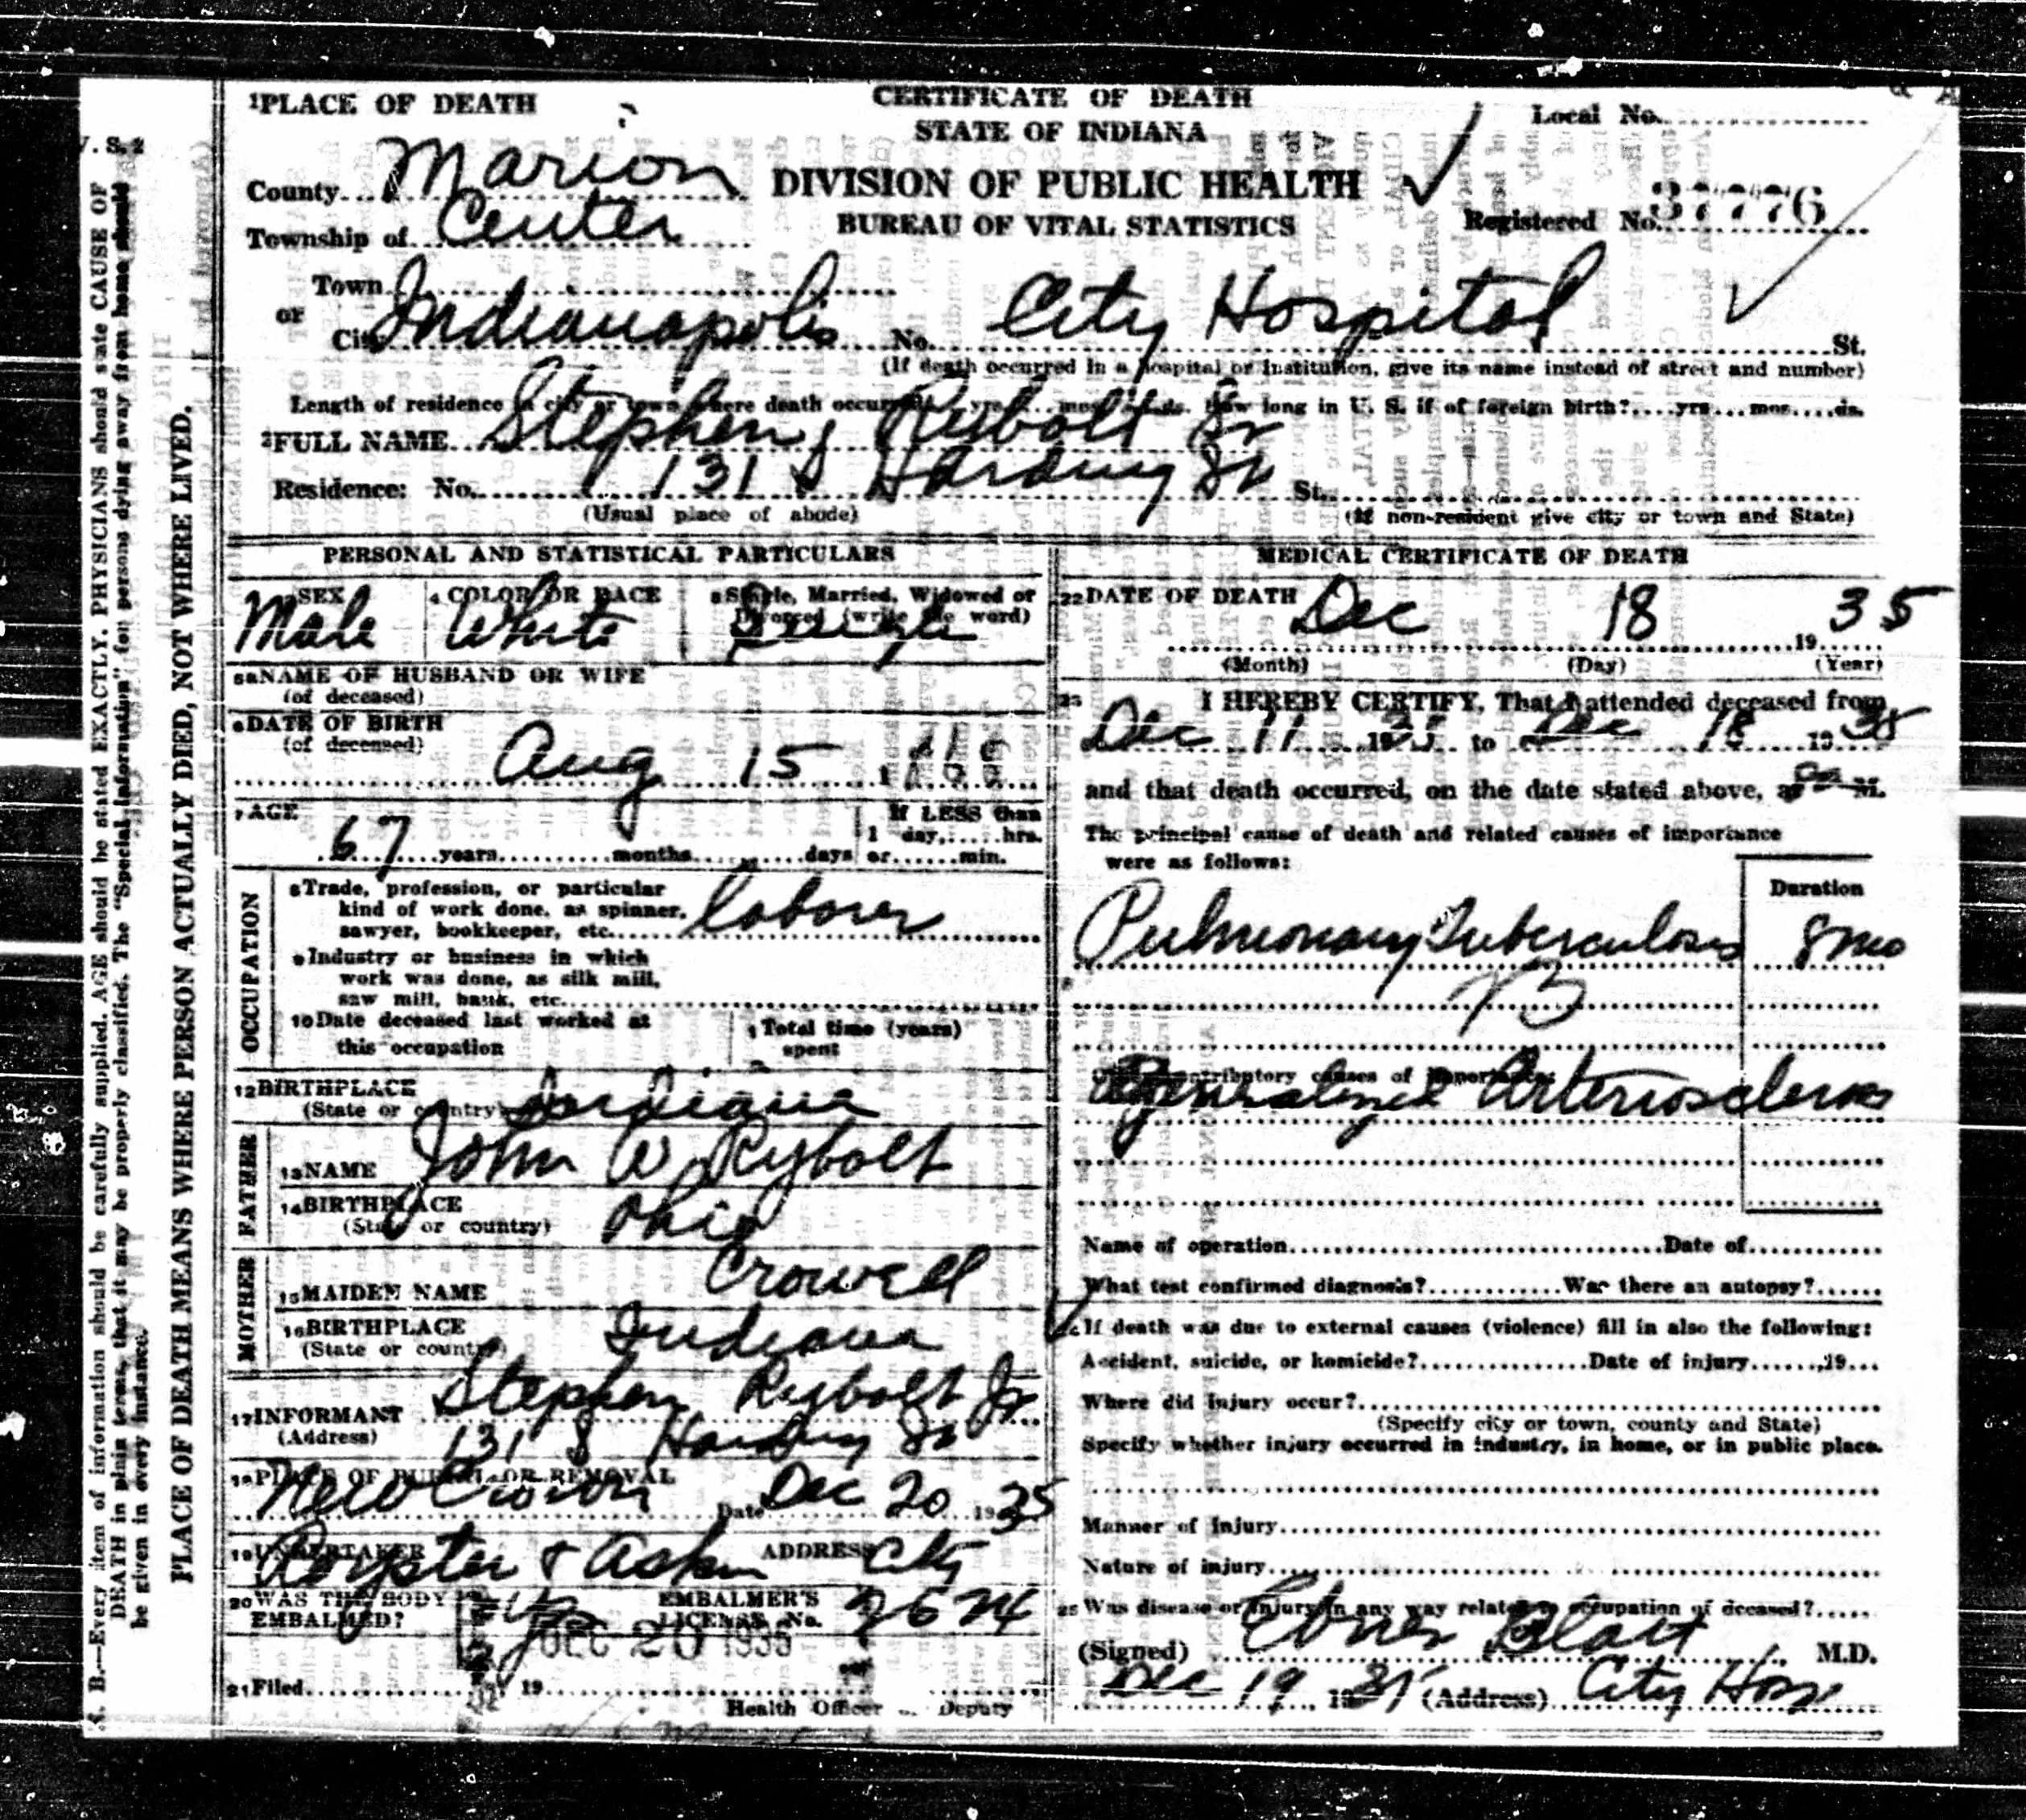 1PLACE OF DEATH
CERTIFICATE OF DEATH
STATE OF INDIANA
Local No.
V. S. 2
County Marion
DIVISION OF PUBLIC HEALTH
Township of Center
BUREAU OF VITAL STATISTICS
Registered No. 37776
Town
or
City Indianapolis No. City Hospital St.
(If death occurred in a hospital or institution, give its name instead of street and number)
Length of residence in city or town where death occurred yrs. mos. ds. How long in U. S. if of foreign birth? yrs. mos. ds.
2FULL NAME Stephen Rybolt Sr
Residence: No. 131 S Harding St St.
(Usual place of abode) (If non-resident give city or town and State)
PERSONAL AND STATISTICAL PARTICULARS
3SEX 4 COLOR OR RACE 5 Single, Married, Widowed or Divorced (write the word)
Male White Single
5aNAME OF HUSBAND OR WIFE
(of deceased)
6DATE OF BIRTH
(of deceased)
Aug 15 1868
7AGE If LESS than
67 years months days 1 day, hrs. or min.
OCCUPATION
8Trade, profession, or particular
kind of work done, as spinner,
sawyer, bookkeeper, etc. laborer
9Industry or business in which
work was done, as silk mill,
saw mill, bank, etc.
10Date deceased last worked at
this occupation
Total time (years)
spent
12BIRTHPLACE
(State or country) Indiana
FATHER
13NAME John W Rybolt
14BIRTHPLACE
(State or country) Ohio
MOTHER
15MAIDEN NAME Crowell
16BIRTHPLACE
(State or country) Indiana
17INFORMANT Stephen Rybolt Jr
(Address) 131 S Harding St
18PLACE OF BURIAL OR REMOVAL
New Crown Date Dec 20 1935
19UNDERTAKER ADDRESS
Royster & Askin City
20WAS THE BODY
EMBALMED? Yes
EMBALMER'S
LICENSE No. 2624
DEC 20 1935
21Filed 19
Health Officer or Deputy
MEDICAL CERTIFICATE OF DEATH
22DATE OF DEATH Dec 18 1935
(Month) (Day) (Year)
23 I HEREBY CERTIFY, That I attended deceased from
Dec 11 1935 to Dec 18 1935
and that death occurred, on the date stated above, at M.
The principal cause of death and related causes of importance
were as follows:
Duration
Pulmonary Tuberculosis 8 mo
Other contributory causes of importance:
Generalized Arteriosclerosis
Name of operation Date of
What test confirmed diagnosis? Was there an autopsy?
24 If death was due to external causes (violence) fill in also the following:
Accident, suicide, or homicide? Date of injury 19
Where did injury occur?
(Specify city or town, county and State)
Specify whether injury occurred in industry, in home, or in public place.
Manner of injury
Nature of injury
25 Was disease or injury in any way related to occupation of deceased?
(Signed) Ebner Blatt M.D.
Dec 19 1935 (Address) City Hosp
N. B.—Every item of information should be carefully supplied. AGE should be stated EXACTLY. PHYSICIANS should state CAUSE OF
DEATH in plain terms, that it may be properly classified. The "Special Information" for persons dying away from home should
be given in every instance.
PLACE OF DEATH MEANS WHERE PERSON ACTUALLY DIED, NOT WHERE LIVED.